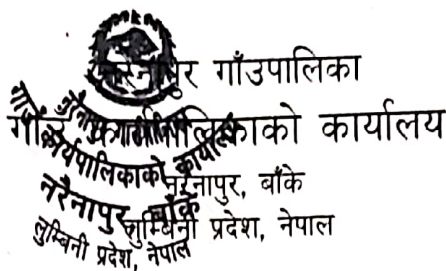 नरैनापुर गाँउपालिका
गाँउ कार्यपालिकाको कार्यालय
नरैनापुर, बाँके
लुम्बिनी प्रदेश, नेपाल
कार्यपालिकाको कार्यालय
नरैनापुर, बाँके
लुम्बिनी प्रदेश, नेपाल